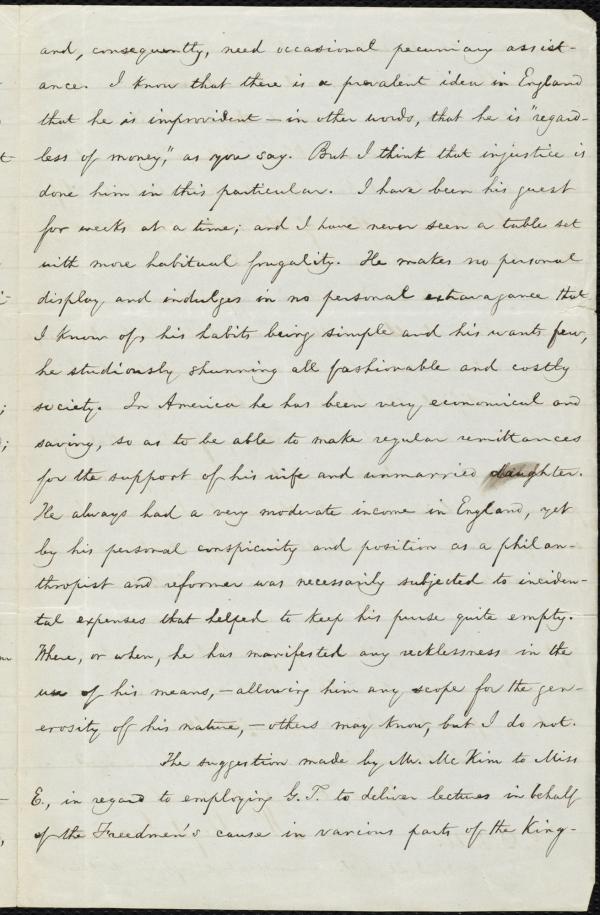 and, consequently, need occasional pecuniary assist-
ance. I know that there is a prevalent idea in England
that he is improvident – in other words, that he is "regard-
less of money," as you say. But I think that injustice is
done him in this particular. I have been his guest
for weeks at a time; and I have never seen a table set
with more habitual frugality. He makes no personal
display, and indulges in no personal extravagance that
I know of; his habits being simple and his wants few,
he studiously shunning all fashionable and costly
society. In America he has been very economical and
saving, so as to be able to make regular remittances
for the support of his wife and unmarried daughter.
He always had a very moderate income in England, yet
by his personal conspicuity and position as a philan-
thropist and reformer was necessarily subjected to inciden-
tal expenses that helped to keep his purse quite empty.
Where, or when, he has manifested any recklessness in the
use of his means, – allowing him any scope for the gen-
erosity of his nature, – others may know, but I do not.
The suggestion made by Mr. McKim to Miss
E., in regard to employing G. T. to deliver lectures in behalf
of the Freedmen's cause in various parts of the King-